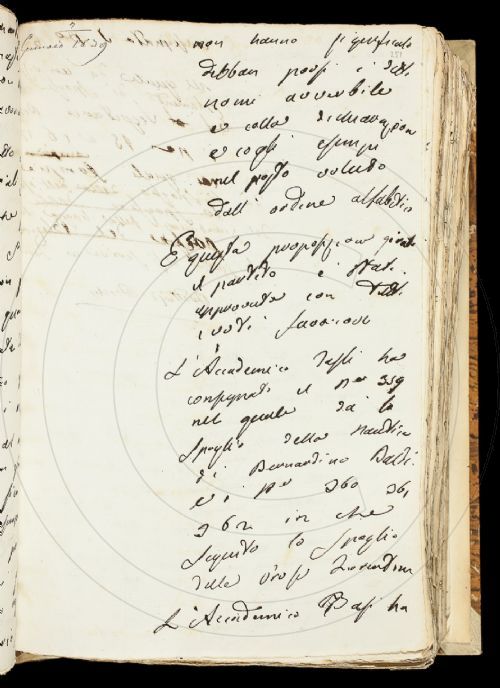 Gennaio 1839
non hanno significato
debban porsi i detti
nomi avverbile
e colla dichiarazion
e cogli esempi
nel posto voluto
dall'ordine alfabetico
E questa proposizion girato
il partito è stata
approvata con tutti
i voti favorevoli
L'Accademico ha
consegnato il n.° 359
nel quale dà lo
Spoglio della Nautica
di Bernardino Baldi.
e i n.i 360 361
362 in che
seguita lo Spoglio
delle Prose Fiorentine
L'Accademico Basi ha